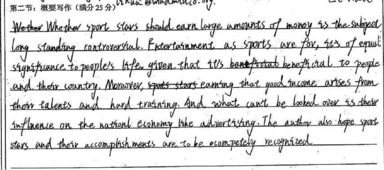 第二节:概要写作(满分25分)
Whether sport stars should earn large amounts of money is the subject
long standing controversial. Entertainment as sports are for, it's of equal
significance to people's life, given that it's beneficial to people
and their country. Moreover, earning that good income arises from
their talents and hard training. And what can't be looked over is their
influence on the national economy like advertising. The author also hope sport
stars and their accomplishments are to be ecompetely recognized.